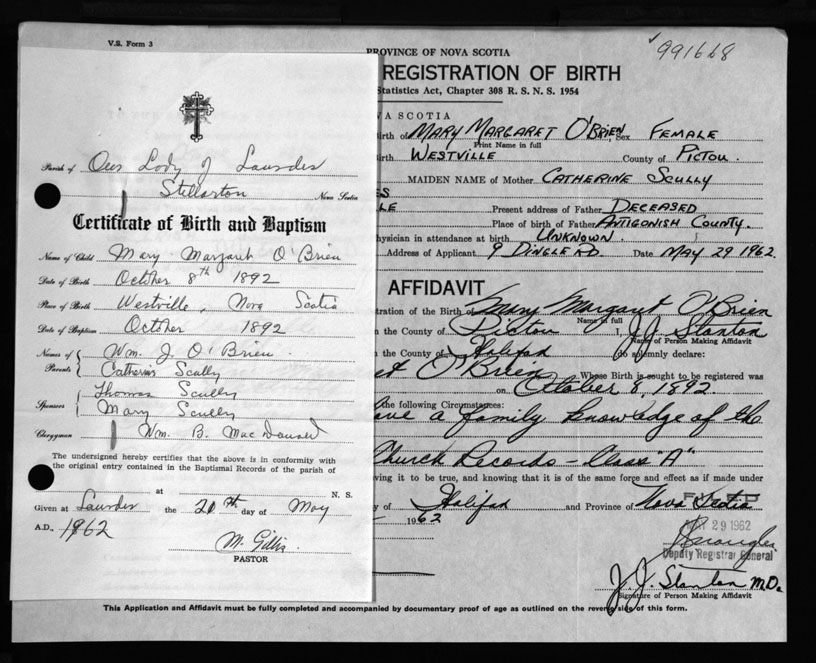 V.S. Form 3
991668
PROVINCE OF NOVA SCOTIA
REGISTRATION OF BIRTH
Statistics Act, Chapter 308 R. S. N. S. 1954
Parish of Our Lady of Lourdes
Stellarton Nova Scotia
Certificate of Birth and Baptism
Name of Child Mary Margaret O'Brien
Date of Birth October 8th 1892
Place of Birth Westville, Nova Scotia
Date of Baptism October 1892
Names of Parents { Wm. J. O'Brien.
Catherine Scully
Sponsors { Thomas Scully
Mary Scully
Clergyman Wm. B. MacDonald
The undersigned hereby certifies that the above is in conformity with
the original entry contained in the Baptismal Records of the parish of
at N. S.
Given at Lourdes the 21th day of May
A.D., 1962
M. Gillis.
PASTOR
NOVA SCOTIA
Birth of MARY MARGARET O'BRIEN, Sex FEMALE
Print Name in full
Birth WESTVILLE County of PICTOU.
MAIDEN NAME of Mother CATHERINE SCULLY
ES
LE Present address of Father DECEASED
Place of birth of Father ANTIGONISH COUNTY.
physician in attendance at birth UNKNOWN.
Address of Applicant 9 DINGLE RD. Date MAY 29 1962.
AFFIDAVIT
tration of the Birth of Mary Margaret O'Brien
Name in full
n the County of Pictou I, J.J. Stanton
Name of Person Making Affidavit
the County of Halifax do solemnly declare:
et O'Brien Whose Birth is sought to be registered was
on October 8, 1892.
the following Circumstances:
have a family knowledge of the
Church Records - Class "A"
ving it to be true, and knowing that it is of the same force and effect as if made under
of Halifax and Province of Nova Scotia
1962
FILED
MAY 29 1962
Deputy Registrar General
J. J. Stanton M.D.
Signature of Person Making Affidavit
This Application and Affidavit must be fully completed and accompanied by documentary proof of age as outlined on the reverse side of this form.